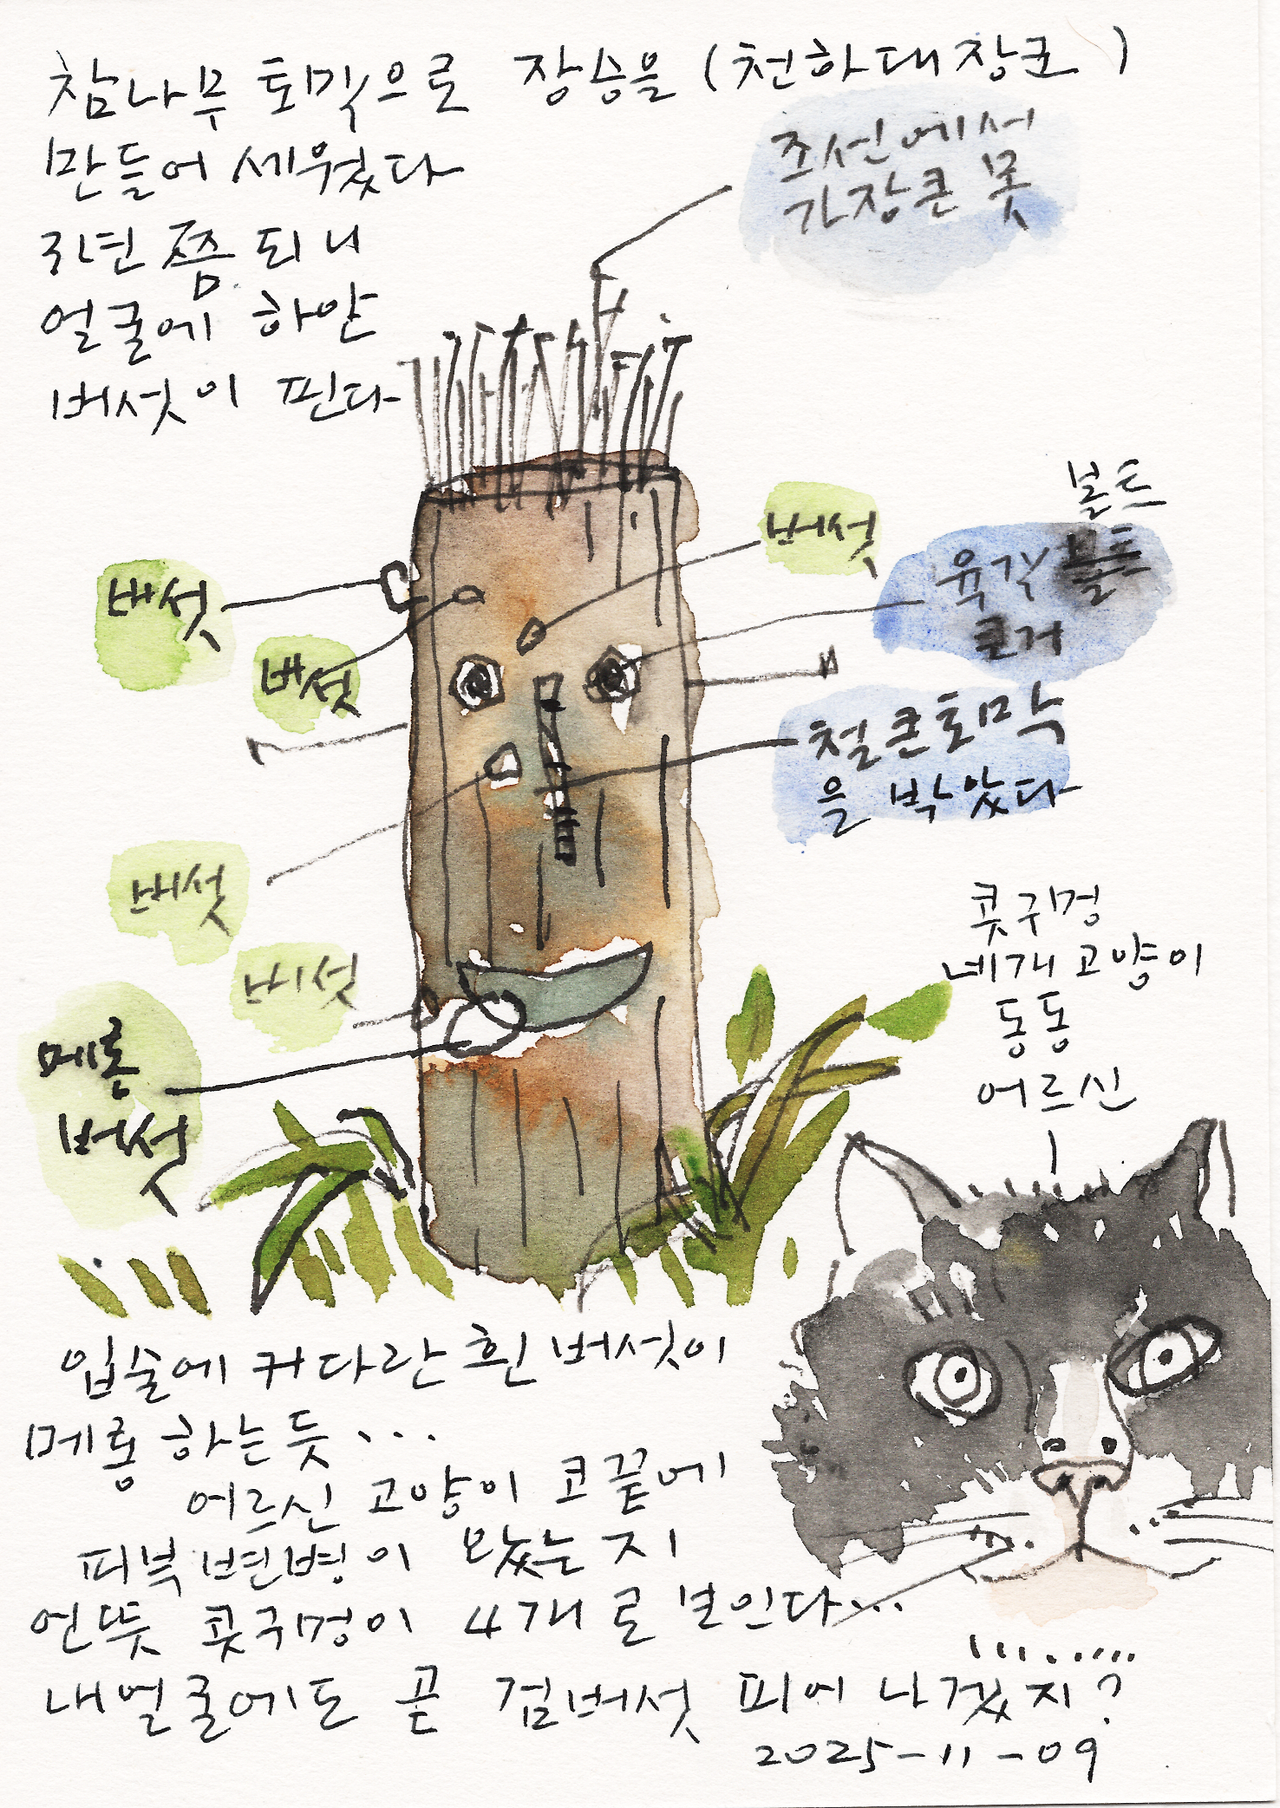 참나무 토막으로 장승을 (천하대장군)
만들어 세웠다
3년 쯤 되니
얼굴에 하얀
버섯이 핀다
조선에서
가장큰 못
버섯
볼트
육각 볼트
큰거
버섯
버섯
철큰토막
을 박았다
버섯
버섯
메롱
버섯
콧구멍
네개 고양이
동동
어르신
입술에 커다란 흰 버섯이
메롱 하는듯...
어르신 고양이 코끝에
피부변병이 왔는지
언뜻 콧구멍이 4개로 보인다...
내얼굴에도 곧 검버섯 피어 나겠지?
2025-11-09